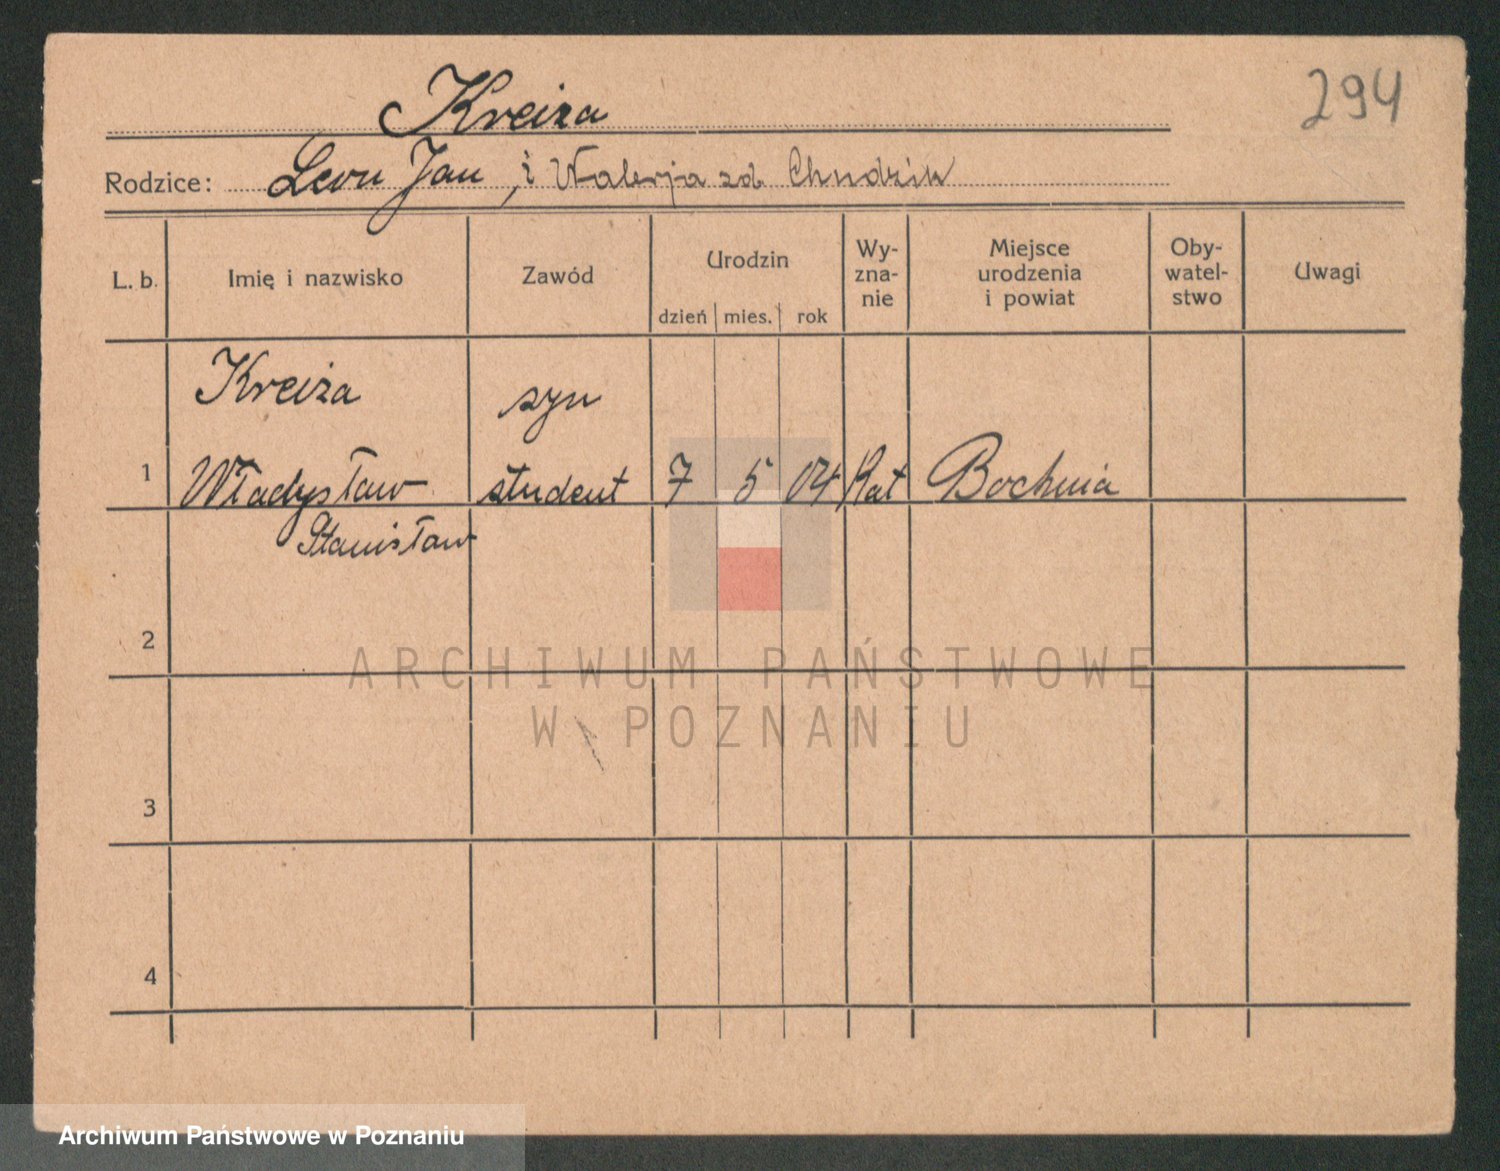 294
Kreiza
Rodzice: Leon Jan, i Walerja zd. Chudzik
L. b. Imię i nazwisko Zawód Urodzin dzień mies. rok Wy-zna-nie Miejsce urodzenia i powiat Oby-watel-stwo Uwagi
Kreiza syn
1 Władysław student 7 5 04 Kat Bochnia
Stanisław
2
ARCHIWUM PAŃSTWOWE
W POZNANIU
3
4
Archiwum Państwowe w Poznaniu